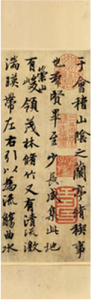 于會稽山陰之蘭亭脩禊事
也羣賢畢至少長咸集此地
有崇山峻領茂林脩竹又有清流激
湍暎帶左右引以為流觴曲水